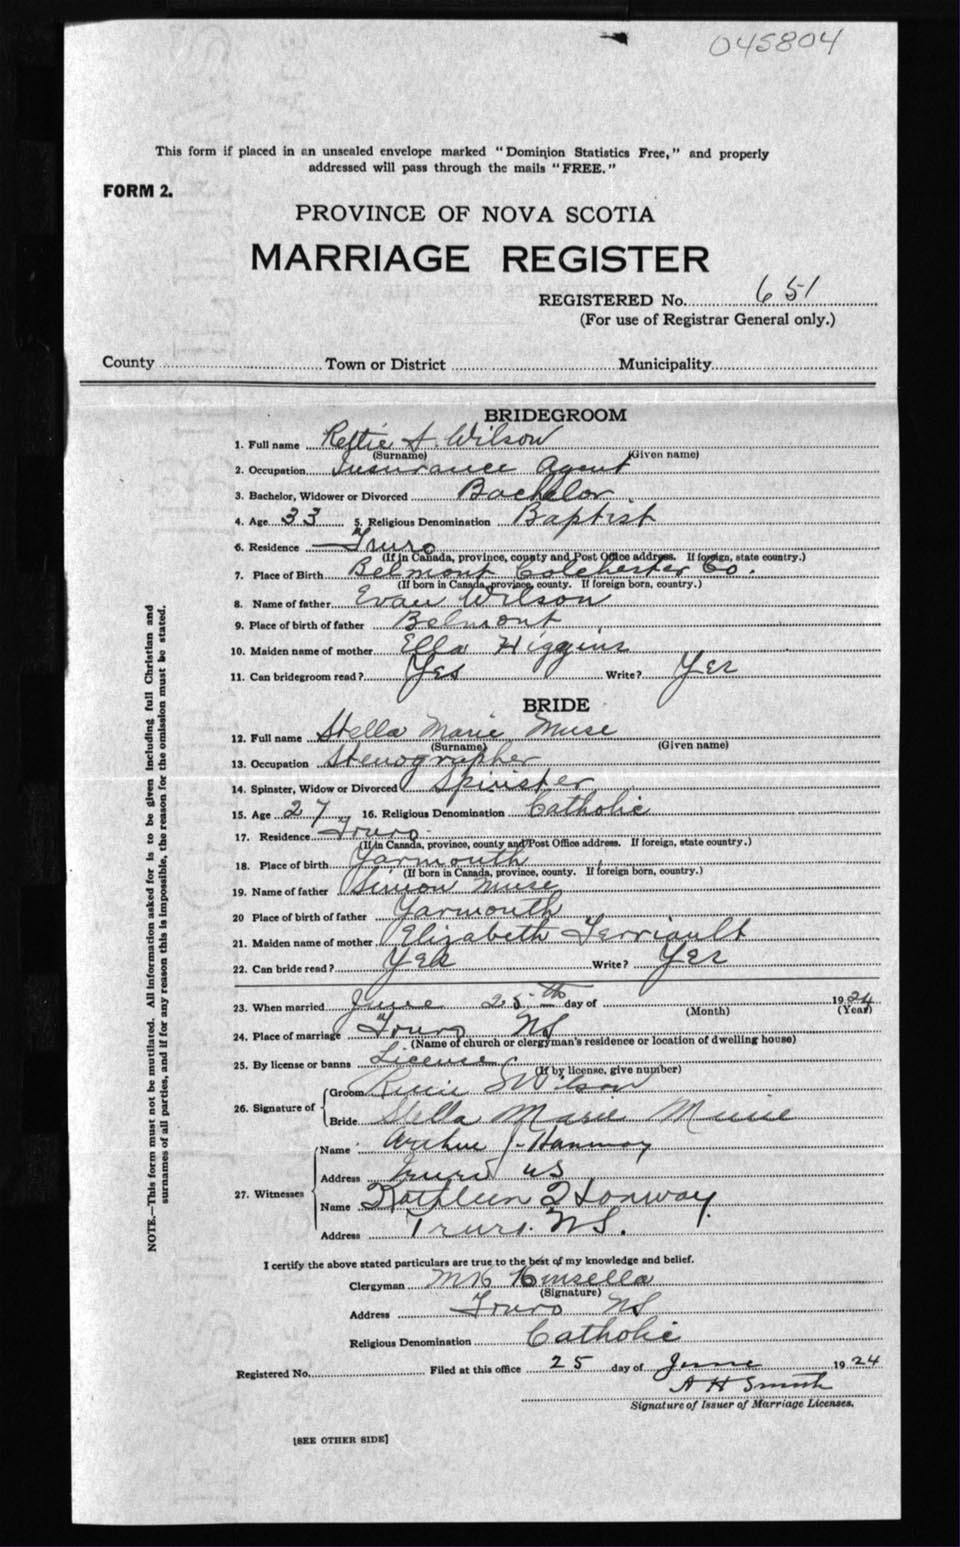 045804
This form if placed in an unsealed envelope marked "Dominion Statistics Free," and properly
addressed will pass through the mails "FREE."
FORM 2.
PROVINCE OF NOVA SCOTIA
MARRIAGE REGISTER
REGISTERED No. 651
(For use of Registrar General only.)
County Town or District Municipality
BRIDEGROOM
1. Full name Rettie S. Wilson
(Surname) (Given name)
2. Occupation Insurance Agent
3. Bachelor, Widower or Divorced Bachelor
4. Age 33 5. Religious Denomination Baptist
6. Residence Truro
(If in Canada, province, county and Post Office address. If foreign, state country.)
7. Place of Birth Belmont Colchester Co.
(If born in Canada, province, county. If foreign born, country.)
8. Name of father Evan Wilson
9. Place of birth of father Belmont
10. Maiden name of mother Ella Higgins
11. Can bridegroom read? Yes Write? Yes
BRIDE
12. Full name Stella Marie Muse
(Surname) (Given name)
13. Occupation Stenographer
14. Spinster, Widow or Divorced Spinster
15. Age 27 16. Religious Denomination Catholic
17. Residence Truro
(If in Canada, province, county and Post Office address. If foreign, state country.)
18. Place of birth Yarmouth
(If born in Canada, province, county. If foreign born, country.)
19. Name of father Simon Muse
20 Place of birth of father Yarmouth
21. Maiden name of mother Elizabeth Terriault
22. Can bride read? Yes Write? Yes
23. When married June 25th day of 1924
(Month) (Year)
24. Place of marriage Truro NS
(Name of church or clergyman's residence or location of dwelling house)
25. By license or banns License
(If by license, give number)
26. Signature of Groom S Wilson
Bride Stella Marie Muise
27. Witnesses Name Arthur J. Hanway
Address Truro NS
Name Kathleen Hanway
Address Truro. NS.
I certify the above stated particulars are true to the best of my knowledge and belief.
Clergyman Kinsella
(Signature)
Address Truro NS
Religious Denomination Catholic
Registered No. Filed at this office 25 day of June 1924
A H Smith
Signature of Issuer of Marriage Licenses.
[SEE OTHER SIDE]
NOTE.—This form must not be mutilated. All information asked for is to be given including full Christian and
surnames of all parties, and if for any reason this is impossible, the reason for the omission must be stated.